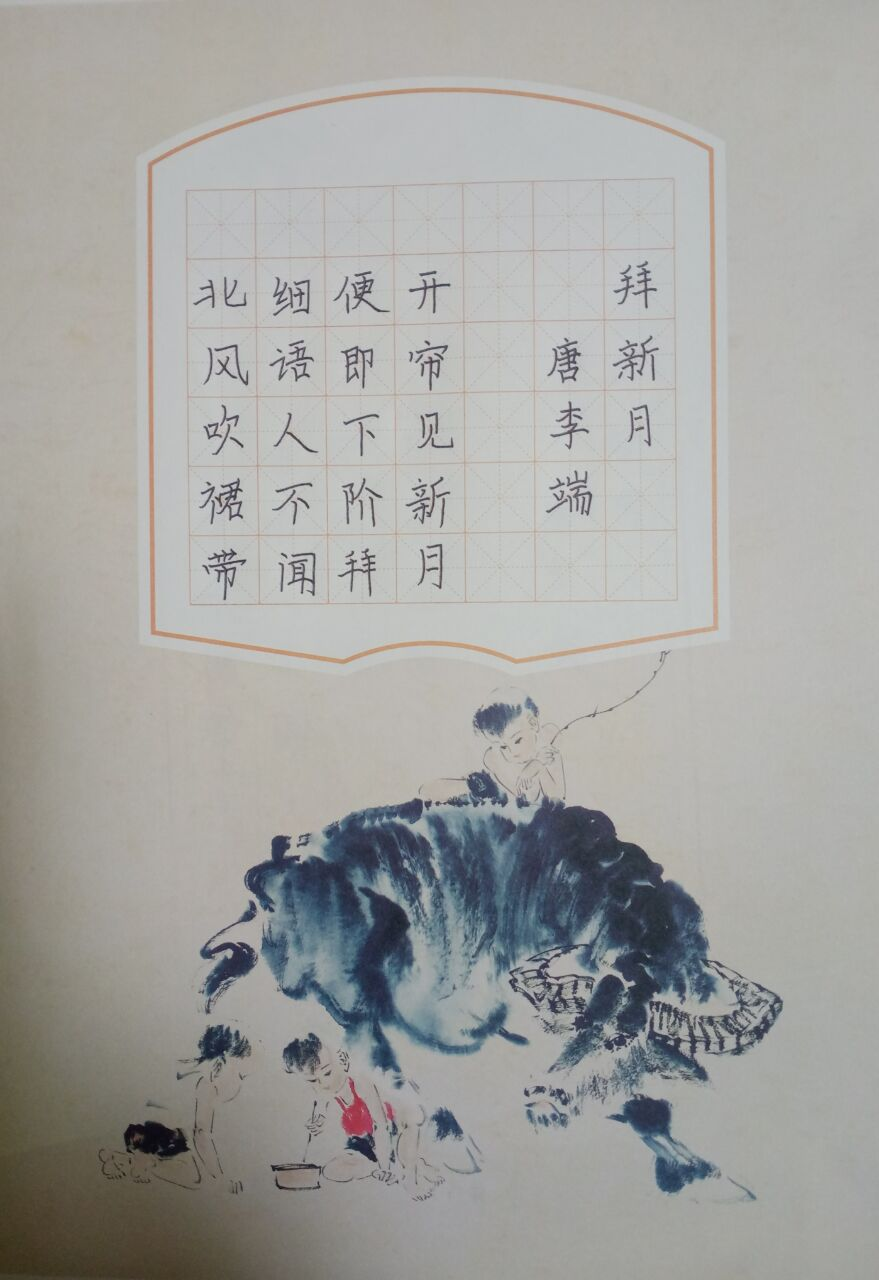 拜新月
唐李端
开帘见新月
便即下阶拜
细语人不闻
北风吹裙带